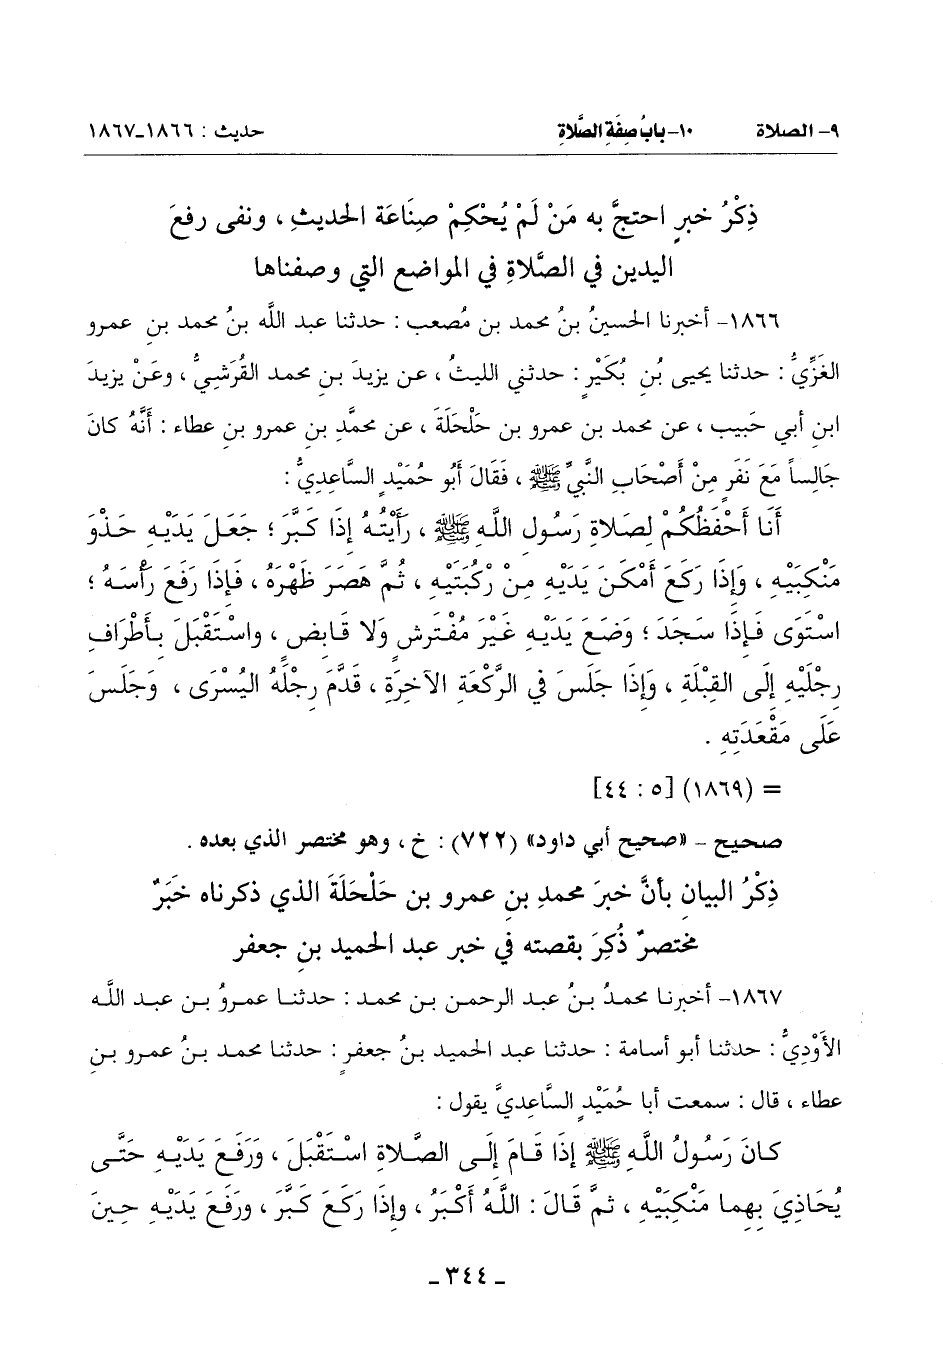 ٩- الصلاة ١٠-بابُ صِفَةِ الصَّلاةِ حديث : ١٨٦٦-١٨٦٧
ذِكْرُ خبرٍ احتجَّ به مَنْ لَمْ يُحْكِمْ صِنَاعَة الحديثِ ، ونفى رفعَ
اليدين في الصَّلاةِ في المواضع التي وصفناها
١٨٦٦- أخبرنا الحسينُ بنُ محمد بن مُصعب : حدثنا عبد الله بنُ محمد بنِ عمرو
الغَزِّيُّ : حدثنا يحيى بُن بُكَيْرٍ : حدثني الليثُ ، عن يزيدَ بنِ محمد القُرَشيِّ ، وعَنْ يزيدَ
ابنِ أبي حَبيب ، عن محمد بن عمرو بن حَلْحَلَةَ ، عن محمَّدِ بنِ عمرو بنِ عطاء : أَنَّهُ كانَ
جَالِساً مَعَ نَفَرٍ مِنْ أَصْحَابِ النَّبيِّ ﷺ ، فَقَالَ أَبُو حُمَيْدٍ السَّاعِدِيُّ :
أَنَا أَحْفَظُكُمْ لِصَلاةِ رَسُول اللَّهِ ﷺ ، رَأَيْتُهُ إِذَا كَبَّرَ ؛ جَعَلَ يَدَيْهِ حَذْوَ
مَنْكِبَيْهِ ، وَإِذَا رَكَعَ أَمْكَنَ يَدَيْهِ مِنْ رُكْبَتَيْهِ ، ثُمَّ هَصَرَ ظَهْرَهُ ، فَإِذَا رَفَعَ رَأْسَهُ ؛
اسْتَوَى فَإِذَا سَجَدَ ؛ وَضَعَ يَدَيْهِ غَيْرَ مُفْتَرِشٍ وَلا قَابِضٍ ، واسْتَقْبَلَ بأَطْرَافِ
رِجْلَيْهِ إِلَى القِبْلَةِ ، وَإِذَا جَلَسَ في الرَّكْعَةِ الآخِرَةِ ، قَدَّمَ رِجْلَهُ اليُسْرَى ، وَجَلَسَ
عَلَى مَقْعَدَتِهِ .
= (١٨٦٩) [٥ : ٤٤]
صحيح - «صحيح أبي داود» (٧٢٢) : خ ، وهو مختصر الذي بعده .
ذِكْرُ البيان بأنَّ خبرَ محمدِ بنِ عمرو بن حَلْحَلَةَ الذي ذكرناه خَبَرٌ
مختصرٌ ذُكِرَ بقصته في خبر عبد الحميد بنِ جعفر
١٨٦٧- أخبرنا محمدُ بنُ عبد الرحمن بن محمد : حدثنا عمرو بن عبد الله
الأَوْدِيُّ : حدثنا أبو أسامة : حدثنا عبد الحميد بنُ جعفرٍ : حدثنا محمد بنُ عمرو بنِ
عطاء ، قال : سمعت أبا حُمَيْدٍ السَّاعديَّ يقول :
كانَ رَسُولُ اللَّهِ ﷺ إذَا قَامَ إِلَى الصَّلاةِ اسْتَقْبَلَ ، وَرَفَعَ يَدَيْهِ حَتَّى
يُحَاذِيَ بِهِما مَنْكِبَيْهِ ، ثمَّ قَالَ : اللَّهُ أَكْبَرُ ، وإِذَا رَكَعَ كَبَّرَ ، ورَفَعَ يَدَيْهِ حِينَ
- ٣٤٤ -